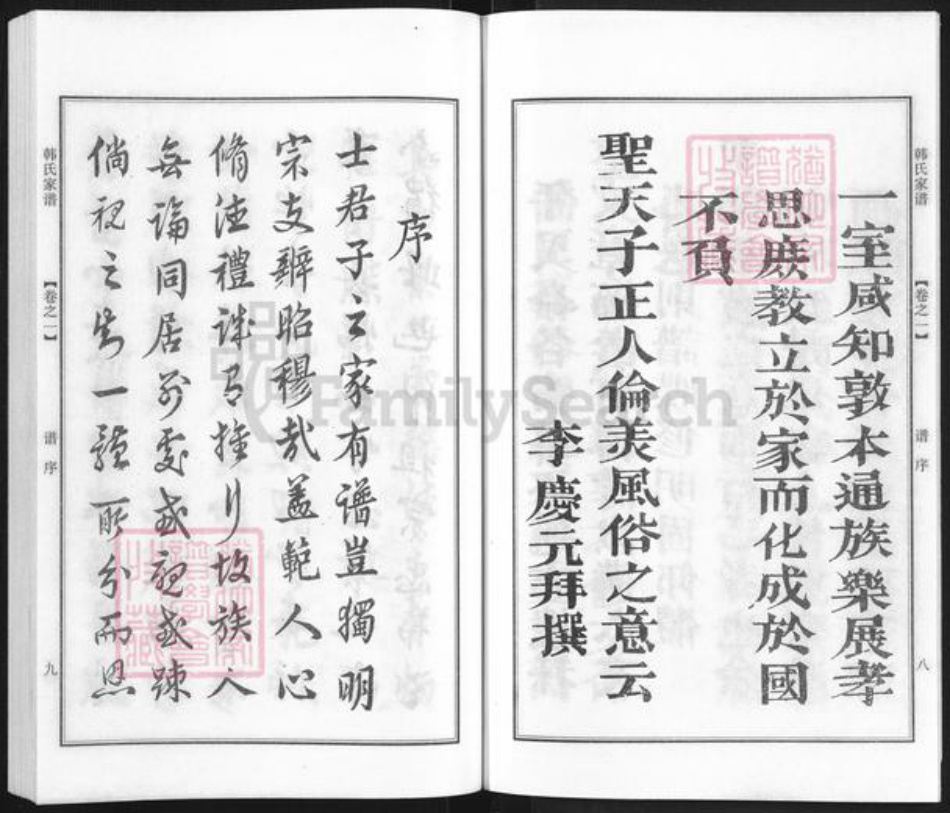 韩氏家谱
【卷之一】
谱序
八
一室咸知敦本通族樂展孝
思庶教立於家而化成於國
不負
聖天子正人倫美風俗之意云
李慶元拜撰
序
士君子之家有譜豈獨明
宗支辧昭穆哉蓋範人心
脩法禮誅有攸行故族人
無論同居別處或親或踈
倘視之為一體所分而恩
韩氏家谱
【卷之一】
谱序
九
FamilySearch